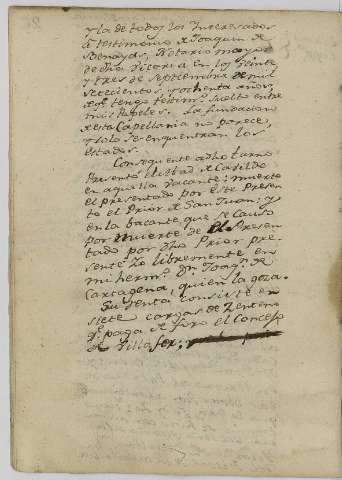 y la de todos los Interesados
a testimonio de Joaquin de
Benayas, Notario mayor
de dha Vicaria en los Veinte
y tres de Septiembre de mil
setecientos, y ochenta años,
de qe tengo testim.º suelto entre
mis Papeles. La fundacion
de esta Capellania no parece,
y solo se enquentran los
estados.
Consequente a dho turno
Presentó el estado de
en aquella vacante; muerto
el presentado por este Presen
tó el Prior de San Juan; y
en la bacante que se Causó
por muerte de el Presen
tado por dho Prior pre
senté Yo libremente en
mi herm.º Dn Joaqn de
Cartagena, quien la goza.
Su renta consiste en
siete cargas de Zenteno
qe paga de foro el Concejo
de Villafer;